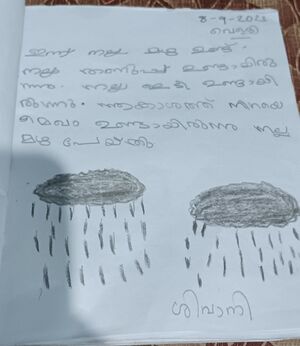 8-9-2022
വെള്ളി
ഇന്ന് നല്ല മഴ ഉണ്ട്.
നല്ല തണുപ്പ് ഉണ്ടായിരി
ന്നു. നല്ല ഇടി ഉണ്ടായി
രുന്നു. ആകാശത്ത് നിറയെ
മേഘം ഉണ്ടായിരുന്നു നല്ല
മഴ പെയ്തു
ശിവാനി